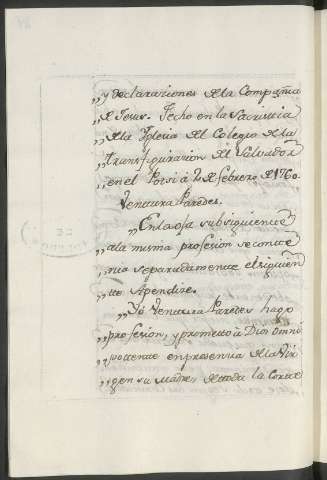 „y declaraciones de la Compañia
„de Jesus. Fecho en la Sacristia
„de la Iglesia del Colegio de la
„transfiguracion del Salvador
„en el Potosi á 2 de febrero de 1760.
Ventura Paredes.
„En la oja subsiguiente
„a la misma profesion se conte
„nia separadamente el siguien
„te Apendice.
„Yo Ventura Paredes hago
„profesion, y prometo à Dios omni
„potente en presencia de la Vir
„gen su Madre, de toda la Corte